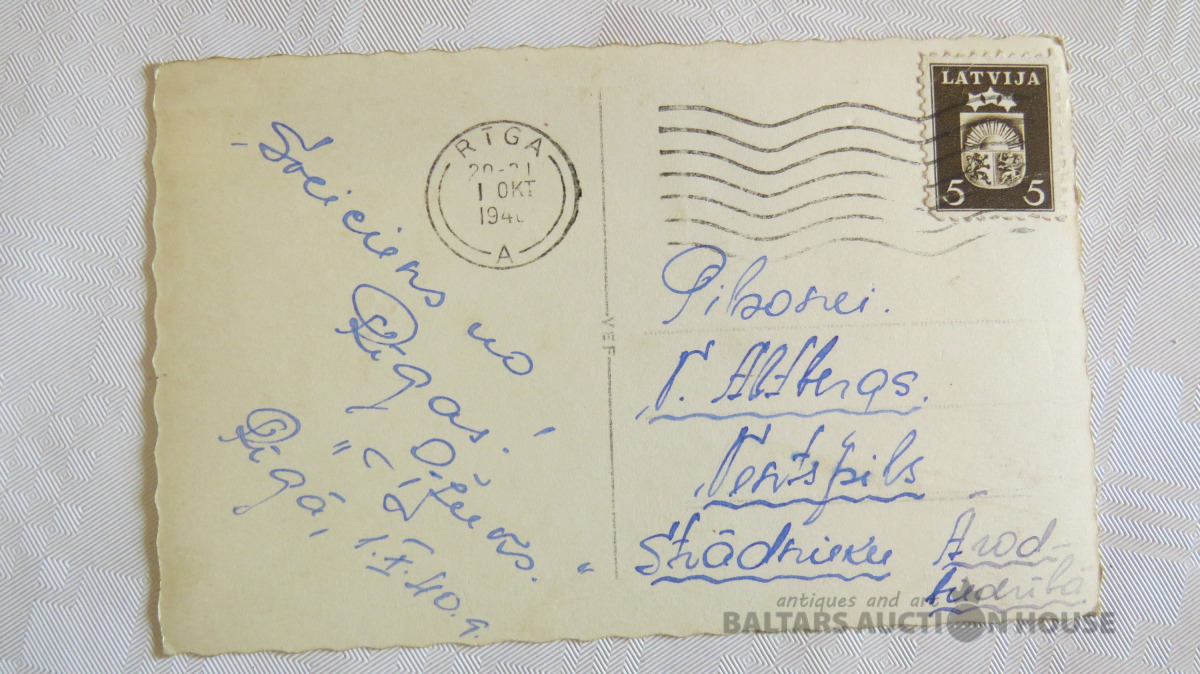 Sveiciens no
Rīgas!
Rīgā, 1.X.40.g.
RĪGA
1 OKT
A
LATVIJA
5 5
VEF
Pilsonei.
V. Altbergs.
Ventspils
Strādnieku Arod-
biedrībā
antiques and art
BALTARS AUCTION HOUSE